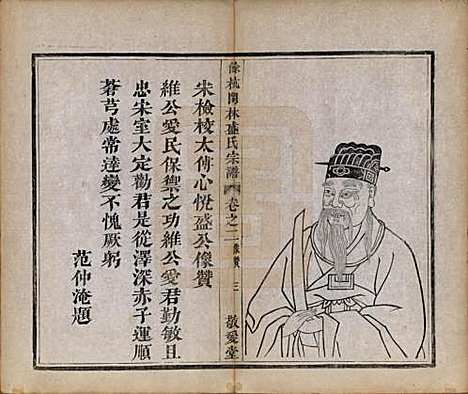 餘杭閑林盛氏宗譜 卷之二 像贊 三 敬愛堂
宋檢校太傅心悅盛公像贊
維公愛民保禦之功維公愛君勤敏且
忠宋室大定勸君是從澤深赤子運順
蒼芎處常達變不愧厥躬
范仲淹題